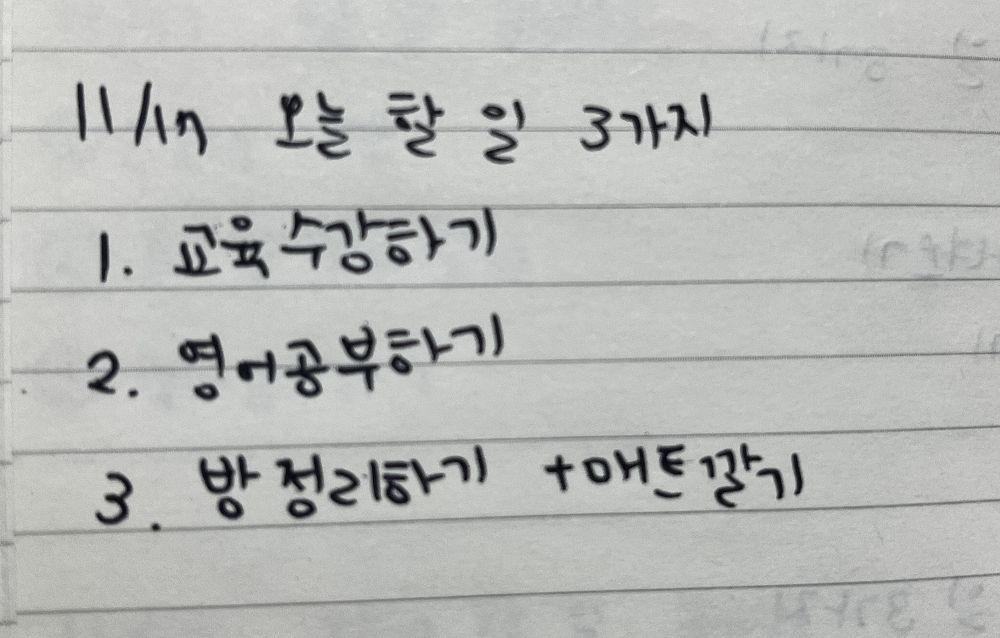 11/17 오늘 할 일 3가지
1. 교육수강하기
2. 영어공부하기
3. 방정리하기 +매트깔기